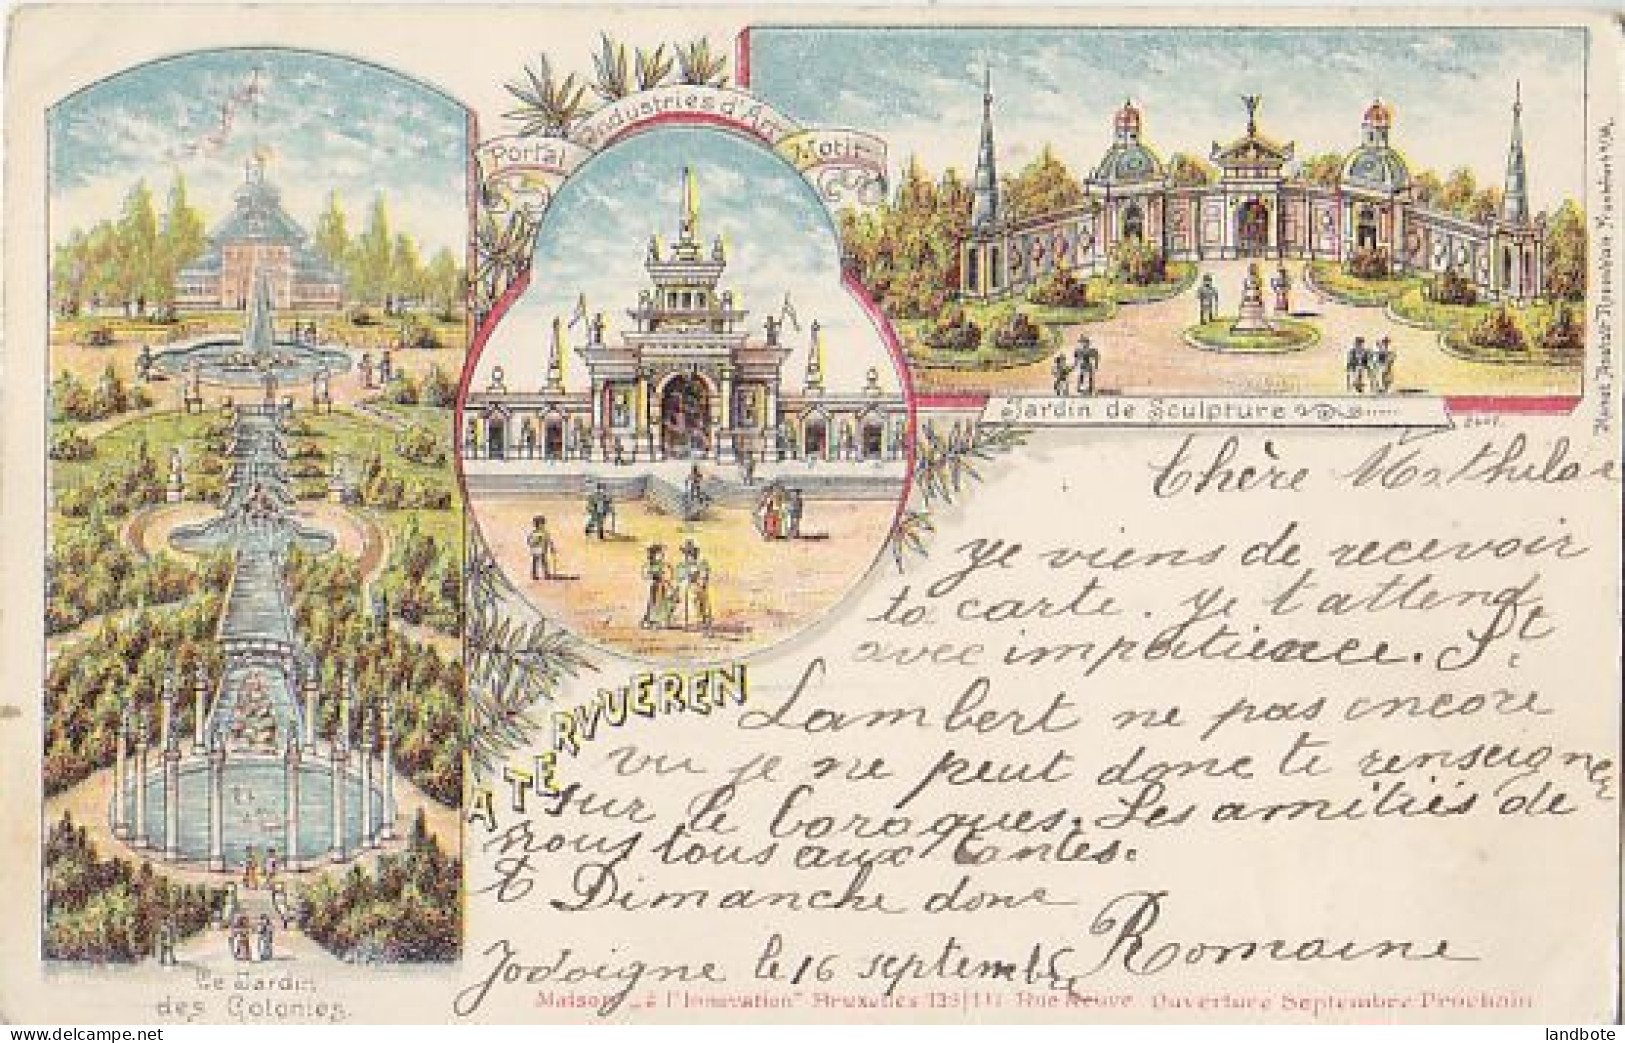 Portal Industries d'Art Motif
Jardin de Sculpture
A TERVUEREN
Le Jardin
des Colonies.
Chère Mathilde
Je viens de recevoir
ta carte. Je t'attend
avec impatience. St
Lambert ne pas encore
vu je ne peut donc te renseigner
sur le baraques. Les amitiés de
nous tous aux tantes.
à Dimanche donc
Romaine
Jodoigne le 16 septembre
Maison „à l'Innovation" Bruxelles Rue Neuve Ouverture Septembre Prochain
landbote